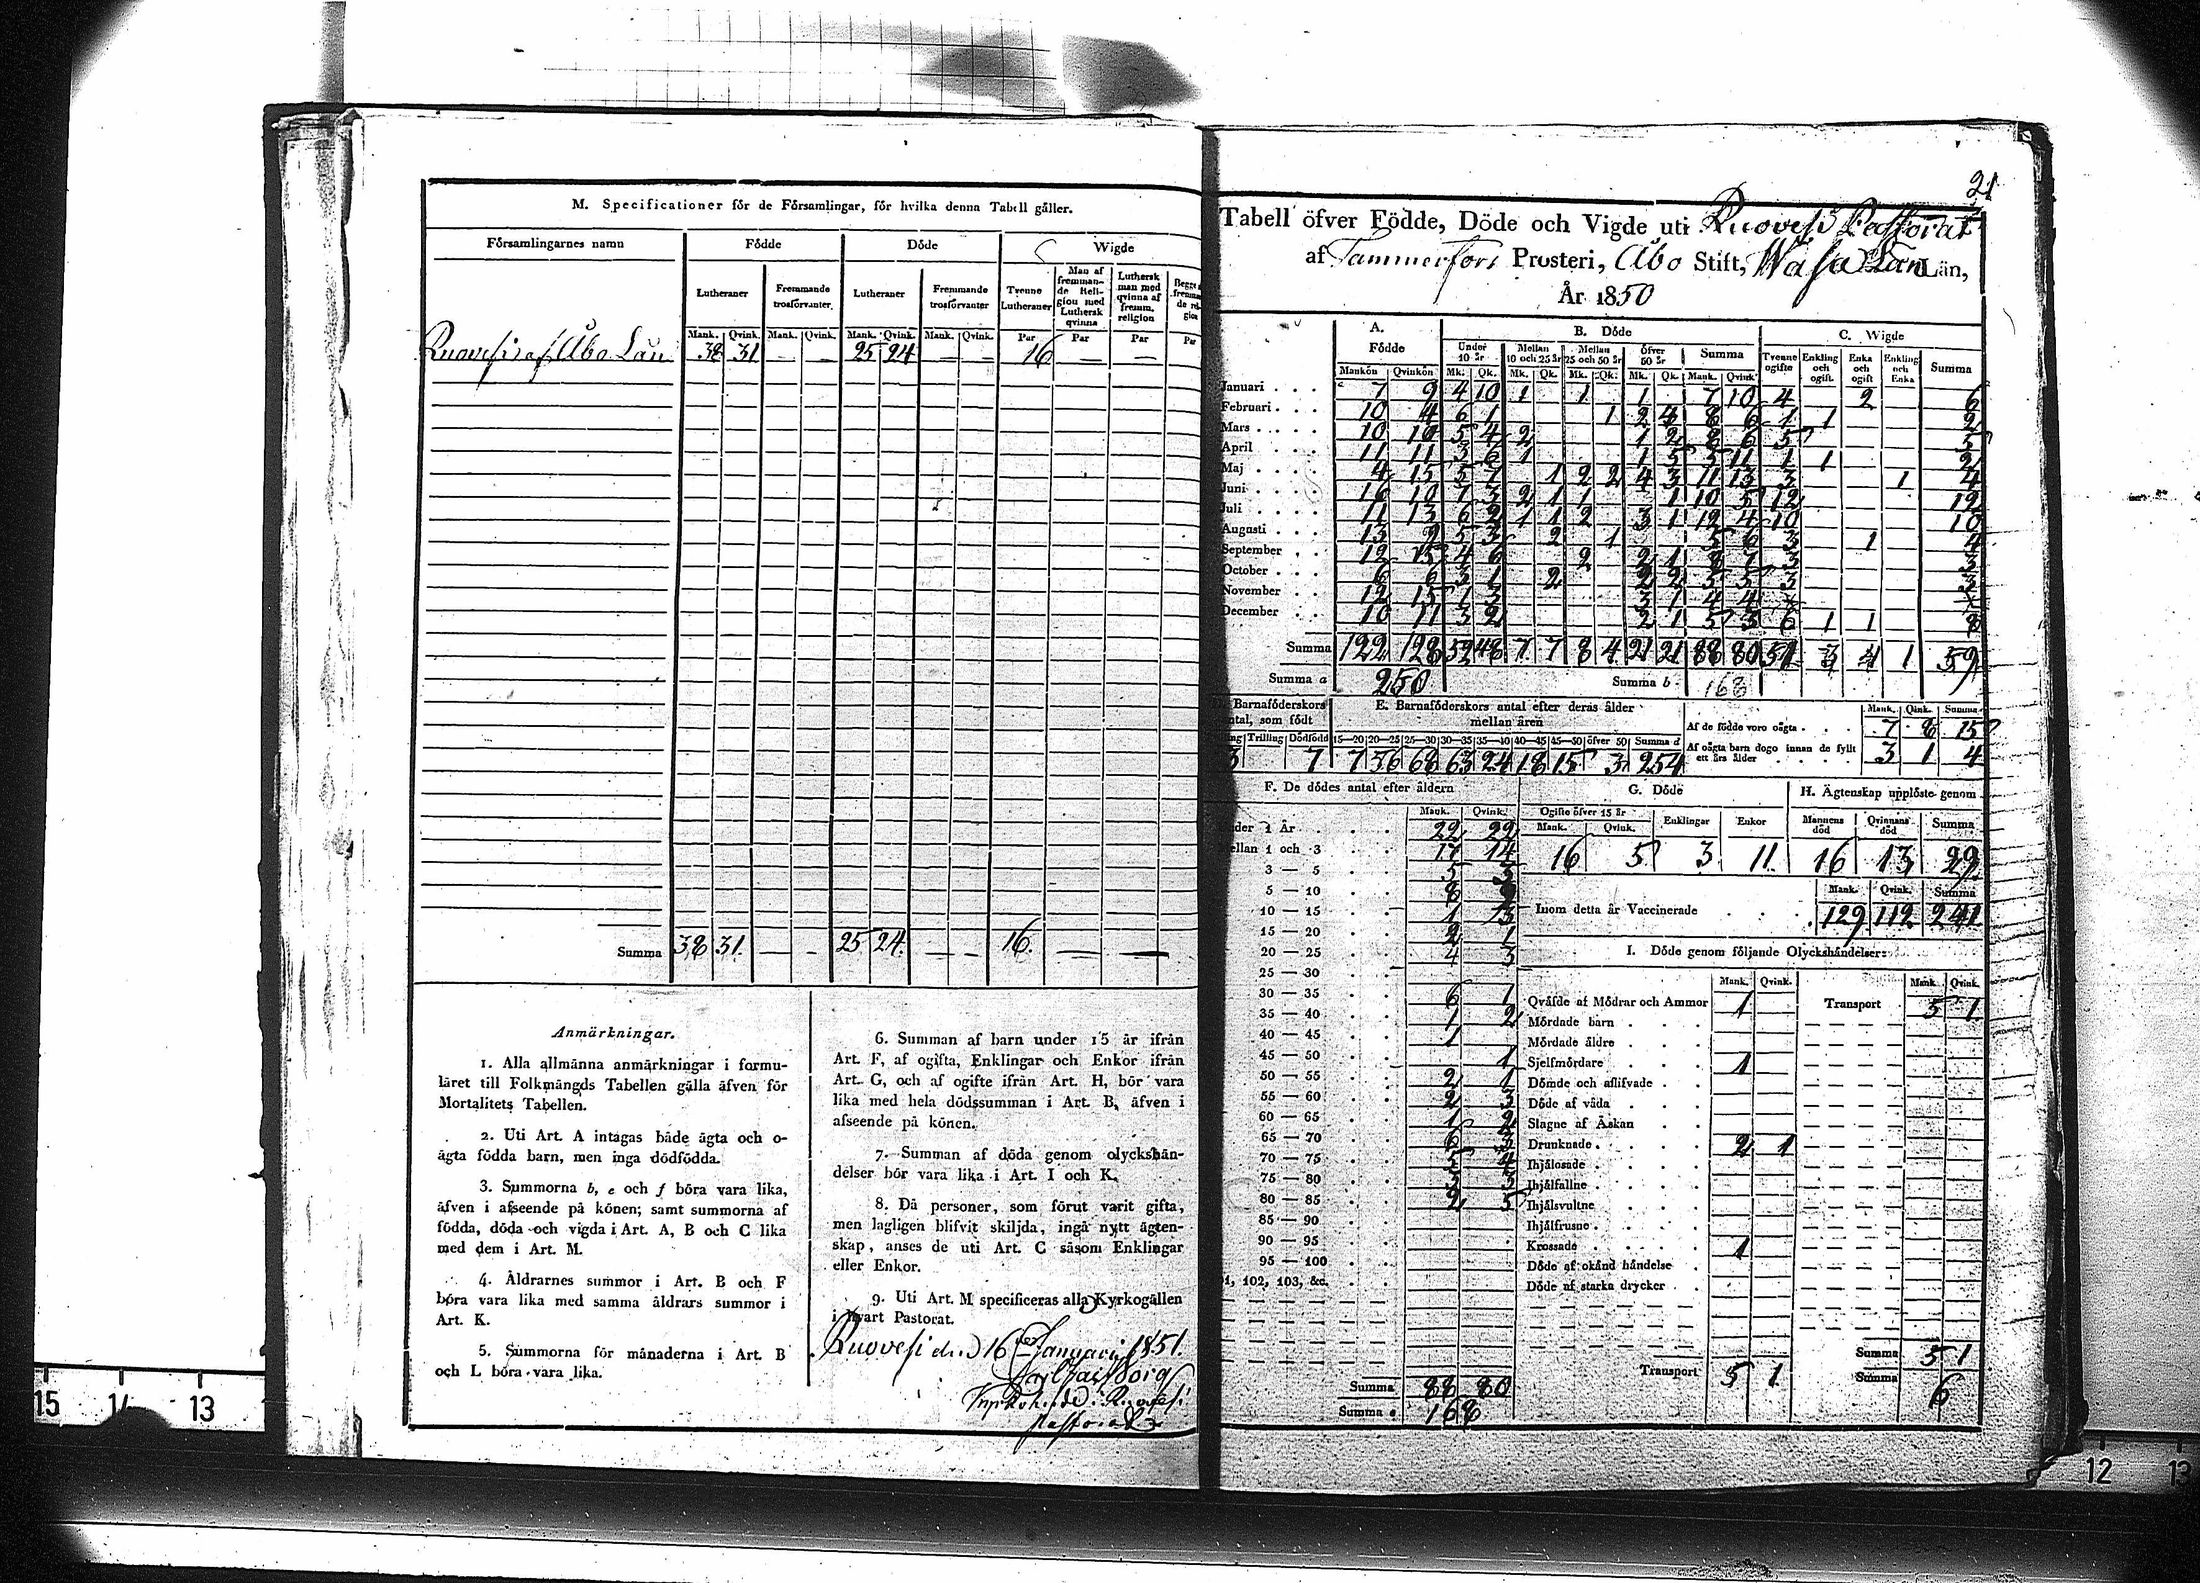 M. Specificationer för de Församlingar, för hvilka denna Tabell gäller.
Församlingarnes namn Födde Döde Wigde
Lutheraner Fremmande trosförvanter Lutheraner Fremmande trosförvanter Tvenne Lutheraner Man af fremmande Religion med Luthersk qvinna Luthersk man med qvinna af fremm. religion
Mank. Qvink. Mank. Qvink. Mank. Qvink. Mank. Qvink. Par Par Par Par
Ruovesi af Åbo Län 38 31 — — 25 24 — — 16 — —
Summa 38 31 — — 25 24 — — 16 — —
Anmärkningar.
1. Alla allmänna anmärkningar i formu-
läret till Folkmängds Tabellen gälla äfven för
Mortalitets Tabellen.
2. Uti Art. A intagas både ägta och o-
ägta födda barn, men inga dödfödda.
3. Summorna b, e och f böra vara lika,
äfven i afseende på könen; samt summorna af
födda, döda och vigda i Art. A, B och C lika
med dem i Art. M.
4. Åldrarnes summor i Art. B och F
böra vara lika med samma åldrars summor i
Art. K.
5. Summorna för månaderna i Art. B
och L böra vara lika.
6. Summan af barn under 15 år ifrån
Art. F, af ogifta, Enklingar och Enkor ifrån
Art. G, och af ogifte ifrån Art. H, bör vara
lika med hela dödssumman i Art. B, äfven i
afseende på könen.
7. Summan af döda genom olyckshän-
delser bör vara lika i Art. I och K.
8. Då personer, som förut varit gifta,
men lagligen blifvit skiljda, ingå nytt ägten-
skap, anses de uti Art. C såsom Enklingar
eller Enkor.
9. Uti Art. M specificeras alla Kyrkogällen
i hvart Pastorat.
Ruovesi den 16 Januari 1851.
21
Tabell öfver Födde, Döde och Vigde uti Ruovesi Pastorat
af Tammerfors Prosteri, Åbo Stift, Wasa Län Län,
År 1850
A. Födde B. Döde C. Wigde
Under 10 år Mellan 10 och 25 år Mellan 25 och 50 år Öfver 50 år Summa Tvenne ogifte Enkling och ogift Enka och ogift Enkling och Enka Summa
Mankön Qvinkön Mk. Qk. Mk. Qk. Mk. Qk. Mk. Qk. Mank. Qvink.
Januari 7 9 4 10 1 1 1 7 10 4 2 6
Februari 10 4 6 1 1 2 4 8 6 1 1 2
Mars 10 10 5 4 2 1 2 8 6 5 5
April 11 11 3 6 1 1 5 5 11 1 1 2
Maj 4 15 5 7 1 2 2 4 3 11 13 3 1 4
Juni 16 10 7 3 2 1 1 1 10 5 12 12
Juli 11 13 6 2 1 1 2 3 1 12 4 10 10
Augusti 13 9 5 3 2 1 5 6 3 1 4
September 12 15 4 6 2 2 1 8 7 3 3
October 6 6 3 1 2 2 2 5 5 3 3
November 12 15 1 3 3 1 4 4
December 10 11 3 2 2 1 5 3 6 1 1 8
Summa 122 128 52 48 7 7 8 4 21 21 88 80 51 3 4 1 59
Summa a 250 Summa b 168
Barnaföderskors antal, som födt E. Barnaföderskors antal efter deras ålder mellan åren
Trilling Dödfödd 15—20 20—25 25—30 30—35 35—40 40—45 45—50 öfver 50 Summa d
3 7 7 56 68 63 24 18 15 3 254
Mank. Qink. Summa
Af de födde voro oägta 7 8 15
Af oägta barn dogo innan de fyllt ett års ålder 3 1 4
F. De dödes antal efter åldern
Mank. Qvink.
1 År 22 22
1 och 3 17 14
3 — 5 5 3
5 — 10 8 9
10 — 15 1 3
15 — 20 2 1
20 — 25 4 3
25 — 30
30 — 35 6 1
35 — 40 1 2
40 — 45 1
45 — 50 1
50 — 55 2 1
55 — 60 2 3
60 — 65 1 2
65 — 70 6 3
70 — 75 5 4
75 — 80 3 3
80 — 85 2 5
85 — 90
90 — 95
95 — 100
102, 103, &c.
Summa 88 80
Summa e 168
G. Döde
Ogifte öfver 15 år Enklingar Enkor
Mank. Qvink.
16 5 3 11
H. Ägtenskap upplöste genom
Mannens död Qvinnans död Summa
16 13 29
Mank. Qvink. Summa
Inom detta år Vaccinerade 129 112 241
I. Döde genom följande Olyckshändelser:
Mank. Qvink. Mank. Qvink.
Qväfde af Mödrar och Ammor 1 Transport 5 1
Mördade barn
Mördade äldre
Sjelfmördare 1
Dömde och aflifvade
Döde af våda
Slagne af Åskan
Drunknade 2 1
Ihjälosade
Ihjälfallne
Ihjälsvultne
Ihjälfrusne
Krossade 1
Döde af okänd händelse
Döde af starka drycker
Summa 5 1
Transport 5 1 Summa 6
15 14 13
12 13